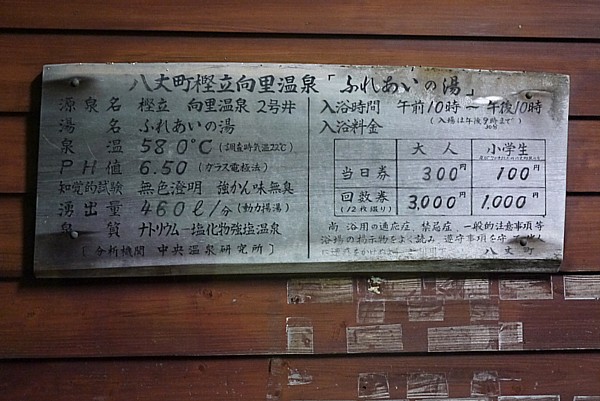 八丈町樫立向里温泉「ふれあいの湯」
源泉名 樫立 向里温泉2号井
湯名 ふれあいの湯
泉温 58.0℃(調査時気温22℃)
PH値 6.50(ガラス電極法)
知覚的試験 無色澄明 強かん味無臭
湧出量 460ℓ/分(動力揚湯)
泉質 ナトリウム-塩化物強塩温泉
[分析機関 中央温泉研究所]
入浴時間 午前10時〜午後10時
(入場は午後9時まで)
30分
入浴料金
大人 小学生
当日券 300円 100円
回数券 3,000円 1,000円
(12枚綴り)
尚 浴用の適応症、禁忌症、一般的注意事項等
浴場の掲示物をよく読み 遵守事項を守
八丈町